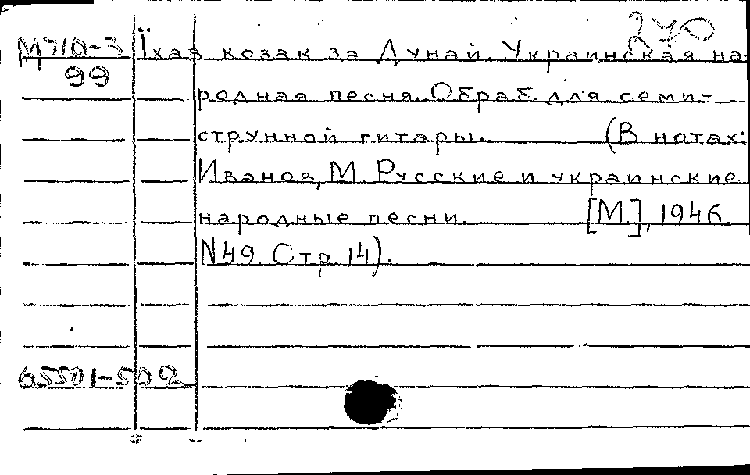 270
М710-3 Їхав козак за Дунай. Украинская на-
99
родная песня. Обраб. для семи-
струнной гитары. (В нотах:
Иванов, М. Русские и украинские
народные песни. [М.], 1946.
N49. Стр. 14).
65501-502